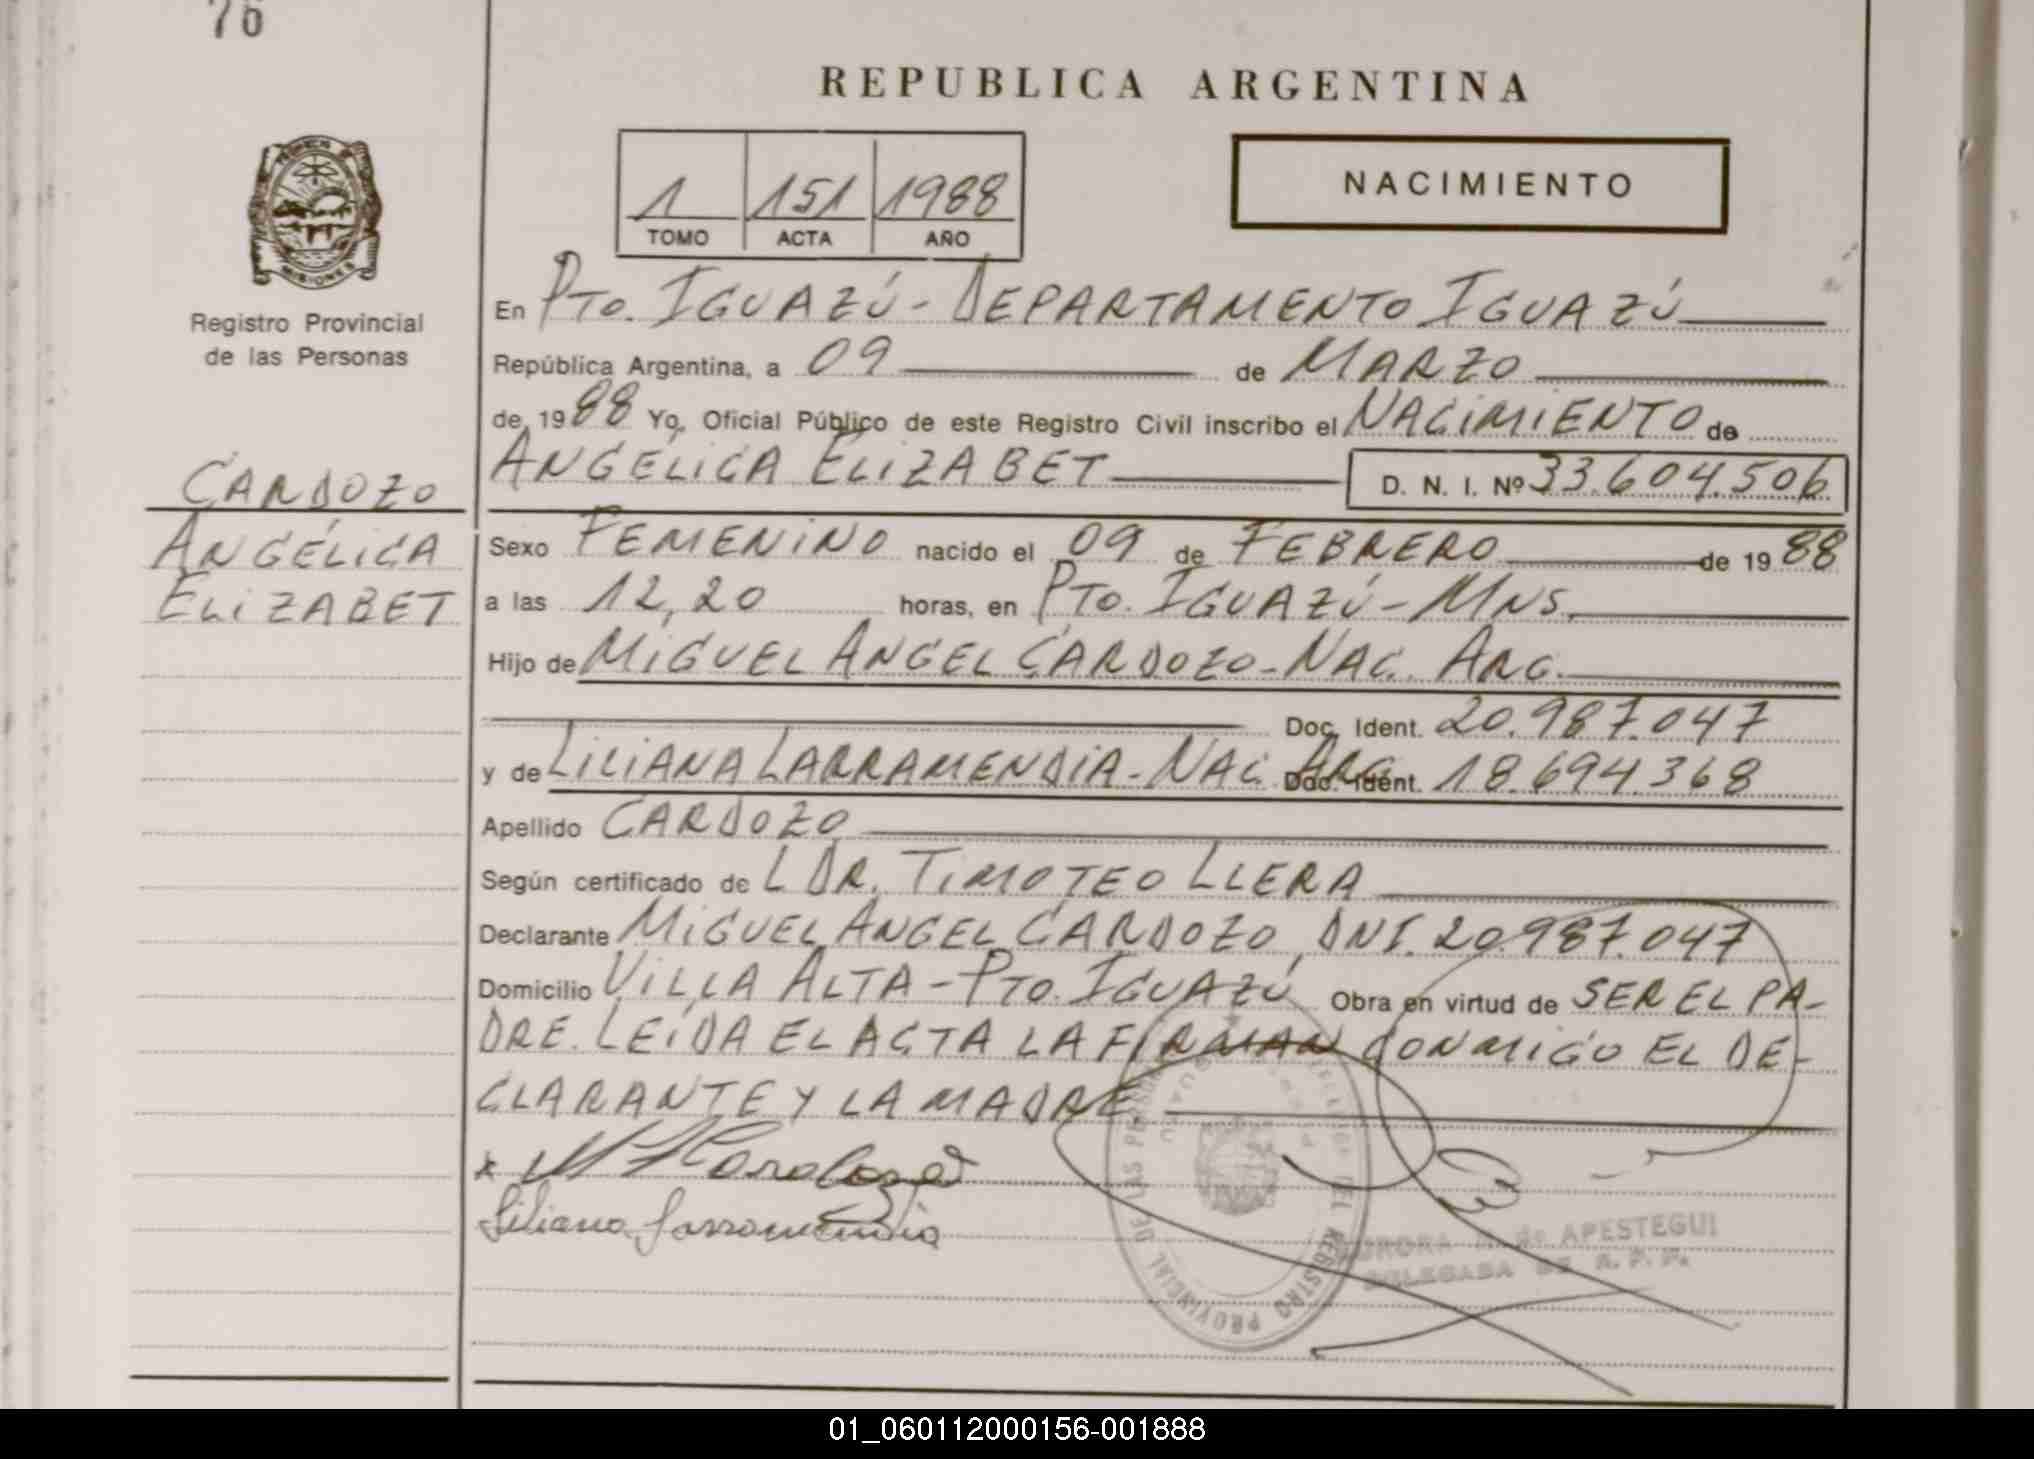 76
REPUBLICA ARGENTINA
NACIMIENTO
1 151 1988
TOMO ACTA AÑO
MISIONES
Registro Provincial
de las Personas
CARDOZO
ANGÉLICA
ELIZABET
En PTO. IGUAZÚ - DEPARTAMENTO IGUAZÚ
República Argentina, a 09 de MARZO
de 1988 Yo, Oficial Público de este Registro Civil inscribo el NACIMIENTO de
ANGÉLICA ELIZABET D. N. I. Nº 33.604.506
Sexo FEMENINO nacido el 09 de FEBRERO de 1988
a las 12,20 horas, en PTO. IGUAZÚ - MNS.
Hijo de MIGUEL ANGEL CARDOZO - NAC. ARG.
Doc. Ident. 20.987.047
y de LILIANA LARRAMENDIA - NAC. ARG. Doc. Ident. 18.694.368
Apellido CARDOZO
Según certificado de L DR. TIMOTEO LLERA
Declarante MIGUEL ANGEL CARDOZO, DNI. 20.987.047
Domicilio VILLA ALTA - PTO. IGUAZÚ Obra en virtud de SER EL PA-
DRE. LEÍDA EL ACTA LA FIRMAN CONMIGO EL DE-
CLARANTE Y LA MADRE
Cardozo
Liliana Larramendia
REGISTRO PROVINCIAL DE LAS
APESTEGUI
DELEGADA DE R. P. P.
01_060112000156-001888